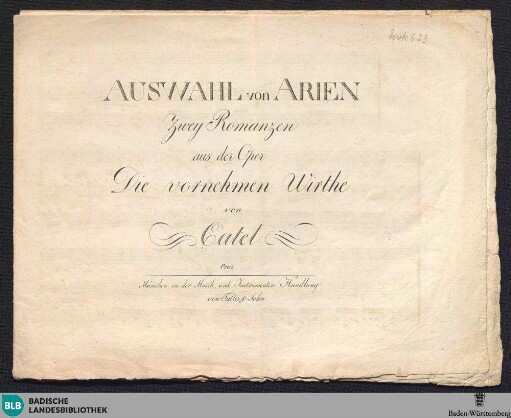 AUSWAHL von ARIEN
Zwey Romanzen
aus der Oper
Die vornehmen Wirthe
von
Catel
Preis
München, in der Musik und Instrumenten Handlung
von Falter & Sohn
BLB BADISCHE
LANDESBIBLIOTHEK
Baden-Württemberg